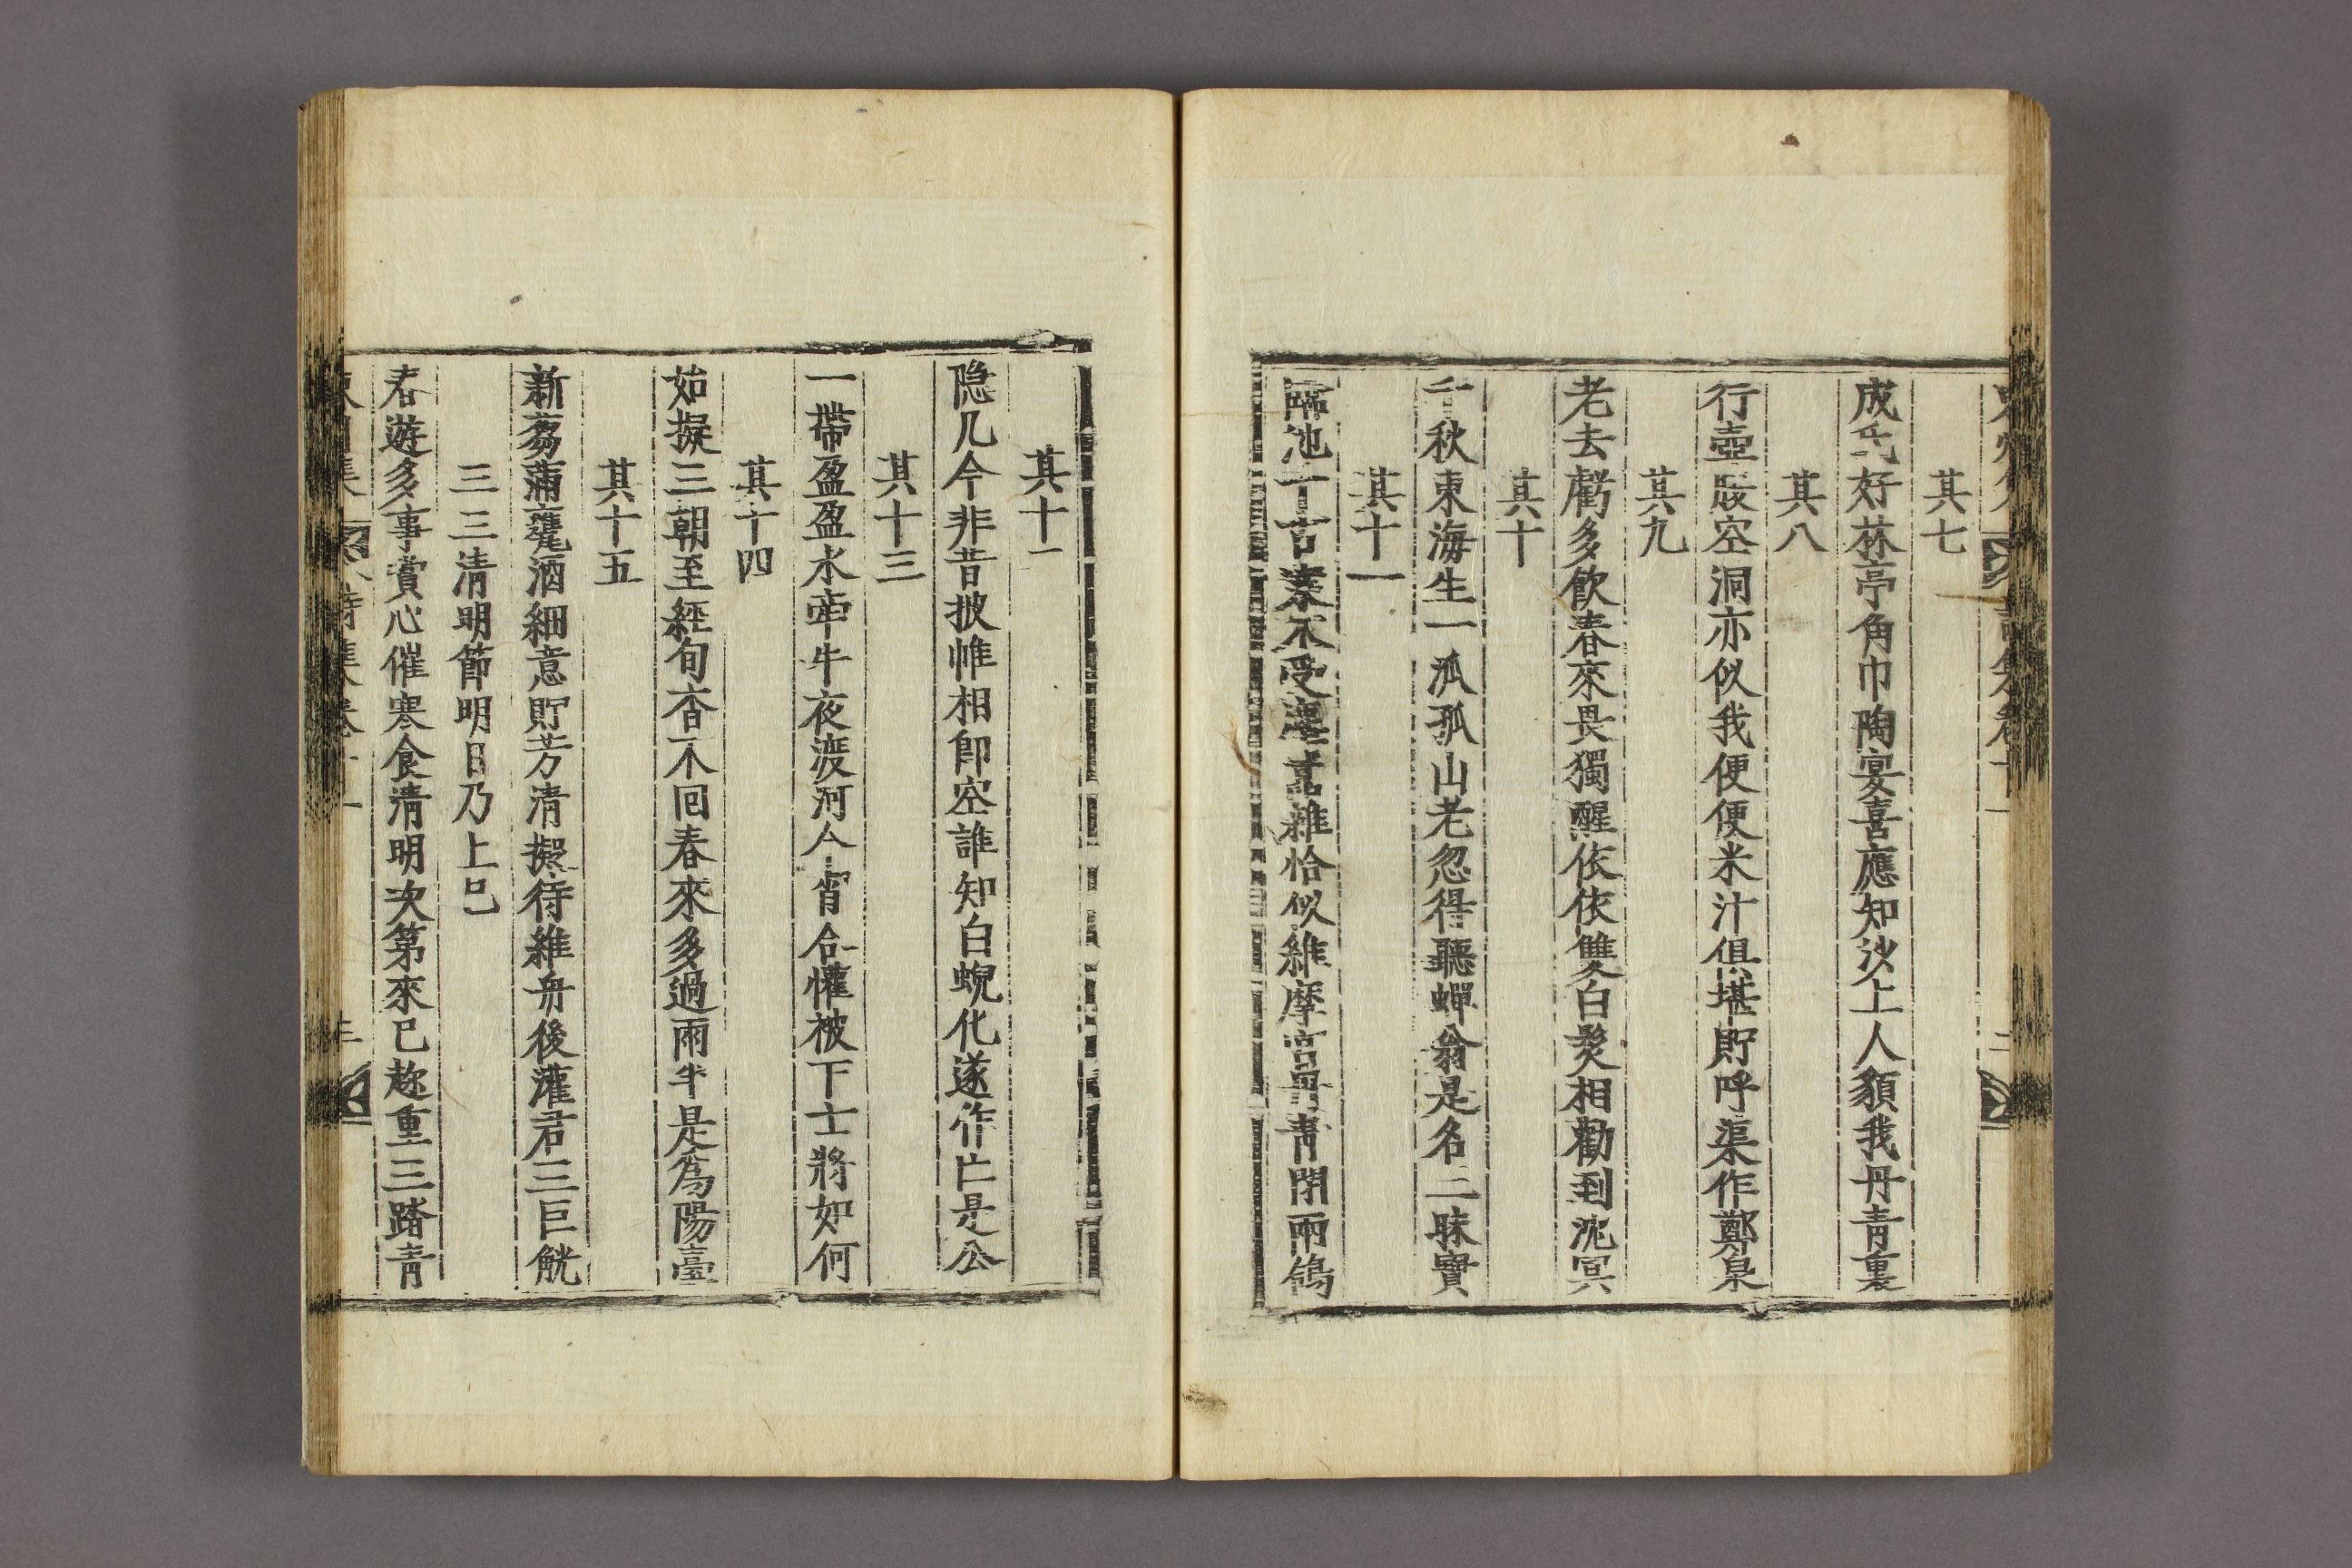 其七
成氏好林亭角巾陶宴喜應知沙上人貌我丹青裏
其八
行壺殷空洞亦似我便便米汁俱堪貯呼渠作鄭泉
其九
老去虧多飲春來畏獨醒依依雙白髮相勸到沈冥
其十
千秋東海生一派孤山老忽得聽蟬翁是名三昧寶
其十一
臨池千古蹇不受塵囂雜恰似維摩宮丹青閉兩鴿
其十
隐几今非昔披帷相卽空誰知白蜺化遂作亡是公
其十三
一帶盈盈水牽牛夜渡河今宵合懽被下士將如何
其十四
始擬三朝至經旬杳不回春來多過雨半是爲陽臺
其十五
新芻蒲甕酒細意貯芳清擬待維舟後灌君三巨觥
三三清明節明日乃上巳
春遊多事賞心催寒食清明次第來已趂重三踏青
詩集卷十一